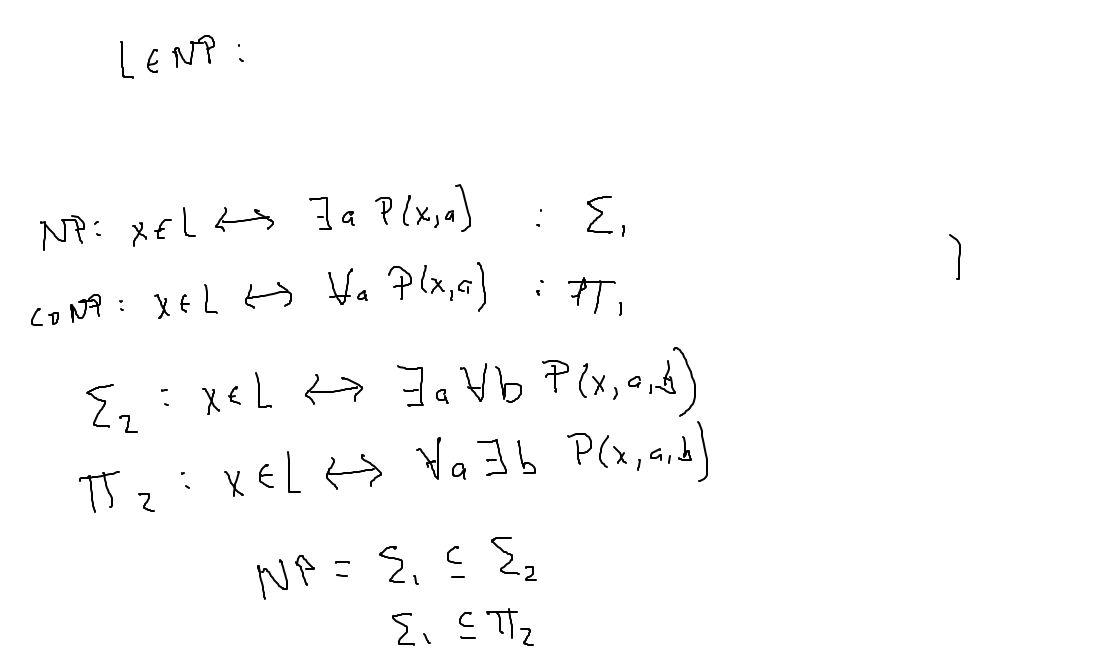 L ∈ NP :
NP: x ∈ L ⟷ ∃a P(x,a) : Σ₁
coNP: x ∈ L ⟷ ∀a P(x,a) : Π₁
Σ₂ : x ∈ L ⟷ ∃a ∀b P(x,a,b)
Π₂ : x ∈ L ⟷ ∀a ∃b P(x,a,b)
NP = Σ₁ ⊆ Σ₂
Σ₁ ⊆ Π₂